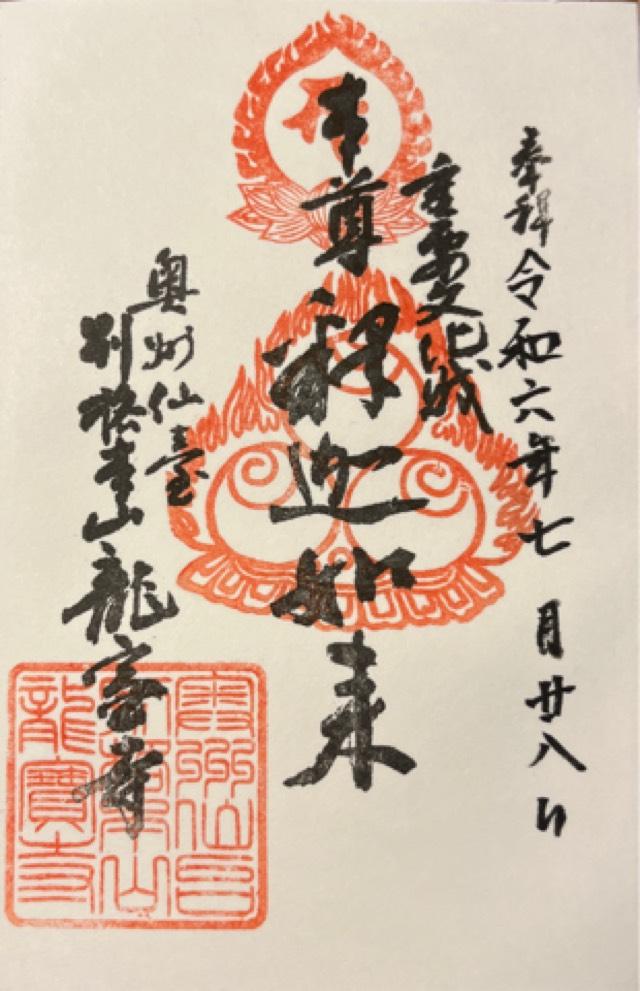 奉拝 令和六年七月廿八日
重要文化財
本尊 釈迦如来
奥州仙臺
別格本山 龍宝寺
龍寶寺